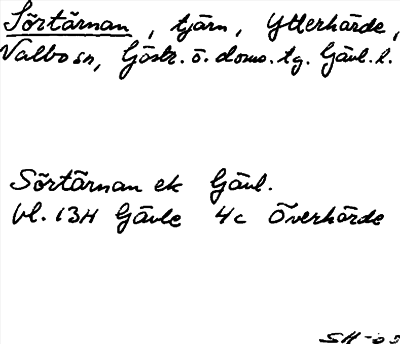 Sörtärnan, tjärn, Ytterhärde,
Valbo sn, Gästr. ö. doms. tg. Gävl. l.
Sörtärnan ek Gävl.
bl. 13H Gävle 4c Överhärde